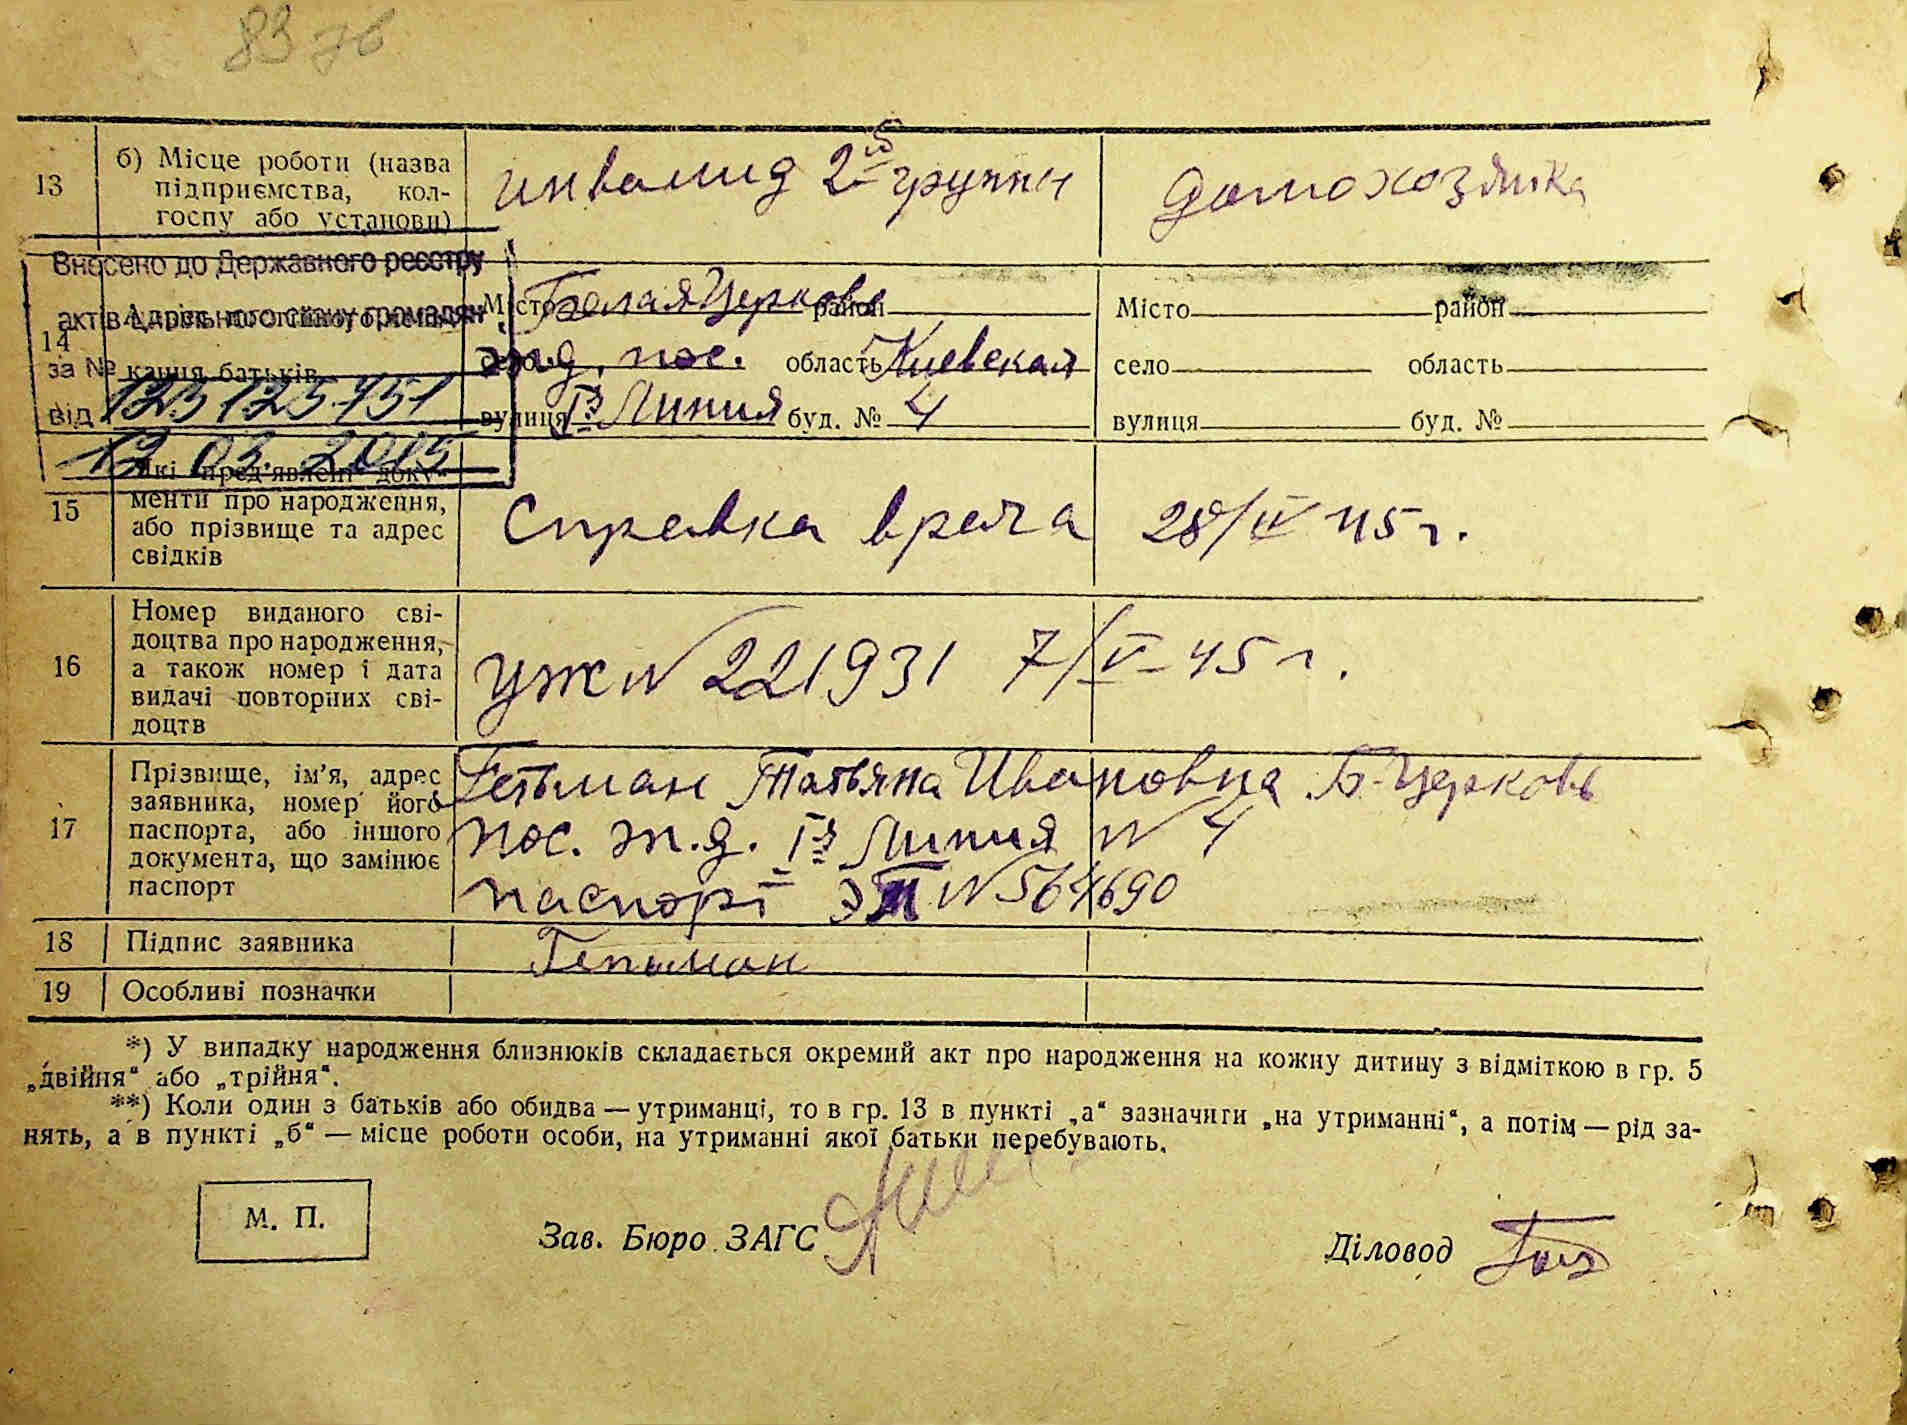 83 76
13
б) Місце роботи (назва
підприємства, кол-
госпу або установи)
инвалид 2ой группы
домохозяйка
Внесено до Державного реєстру
актів цивільного стану громадян
за №
123125751
від
12 03. 2015
14
Адрес постійного
кання батьків
Місто Белая Церковь район
село ж.д. пос. область Киевская
вулиця Iя Линия буд. № 4
Місто район
село область
вулиця буд. №
15
Які пред'явлені доку-
менти про народження,
або прізвище та адрес
свідків
Справка врача 28/IV 45 г.
16
Номер виданого сві-
доцтва про народження,
а також номер і дата
видачі повторних сві-
доцтв
УЖ № 221931 7/V-45 г.
17
Прізвище, ім'я, адрес
заявника, номер його
паспорта, або іншого
документа, що замінює
паспорт
Гетьман Татьяна Ивановна Б-Церковь
пос. ж.д. Iя Линия № 4
паспорт № 564690
18
Підпис заявника
Гетьман
19
Особливі позначки
*) У випадку народження близнюків складається окремий акт про народження на кожну дитину з відміткою в гр. 5
„двійня“ або „трійня“.
**) Коли один з батьків або обидва — утриманці, то в гр. 13 в пункті „а“ зазначити „на утриманні“, а потім — рід за-
нять, а в пункті „б“ — місце роботи особи, на утриманні якої батьки перебувають.
М. П.
Зав. Бюро ЗАГС
Діловод